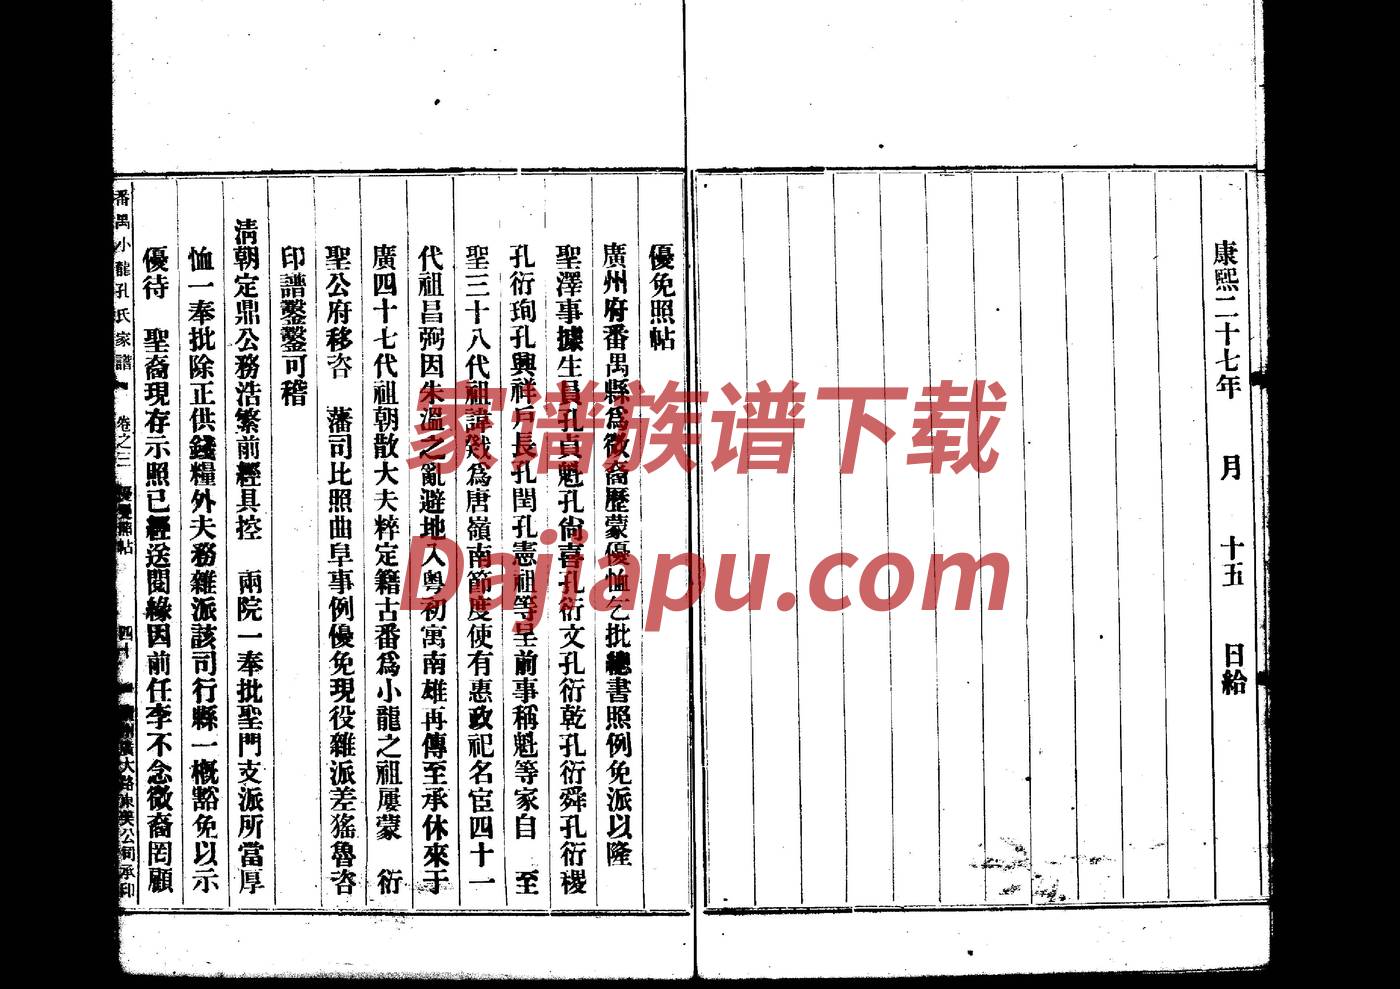 康熙二十七年　月　十五　日給
優免照帖
廣州府番禺縣爲微裔歷蒙優恤乞批總書照例免派以隆
聖澤事據生員孔貞魁孔尙喜孔衍文孔衍乾孔衍舜孔衍稷
孔衍珣孔興祥戶長孔閏孔憲祖等呈前事稱魁等家自　至
聖三十八代祖諱戣爲唐嶺南節度使有惠政祀名宦四十一
代祖昌弼因朱溫之亂避地入粤初寓南雄再傳至承休來于
廣四十七代祖朝散大夫粹定籍古番爲小龍之祖屢蒙　衍
聖公府移咨　藩司比照曲阜事例優免現役雜派差猺魯咨
印譜鑿鑿可稽
淸朝定鼎公務浩繁前經具控　兩院一奉批聖門支派所當厚
恤一奉批除正供錢糧外夫務雜派該司行縣一概豁免以示
優待　聖裔現存示照已經送閱緣因前任李不念微裔罔顧
番禺小龍孔氏家譜　卷之三　優免照帖　四十
家谱族谱下载
Dajiapu.com